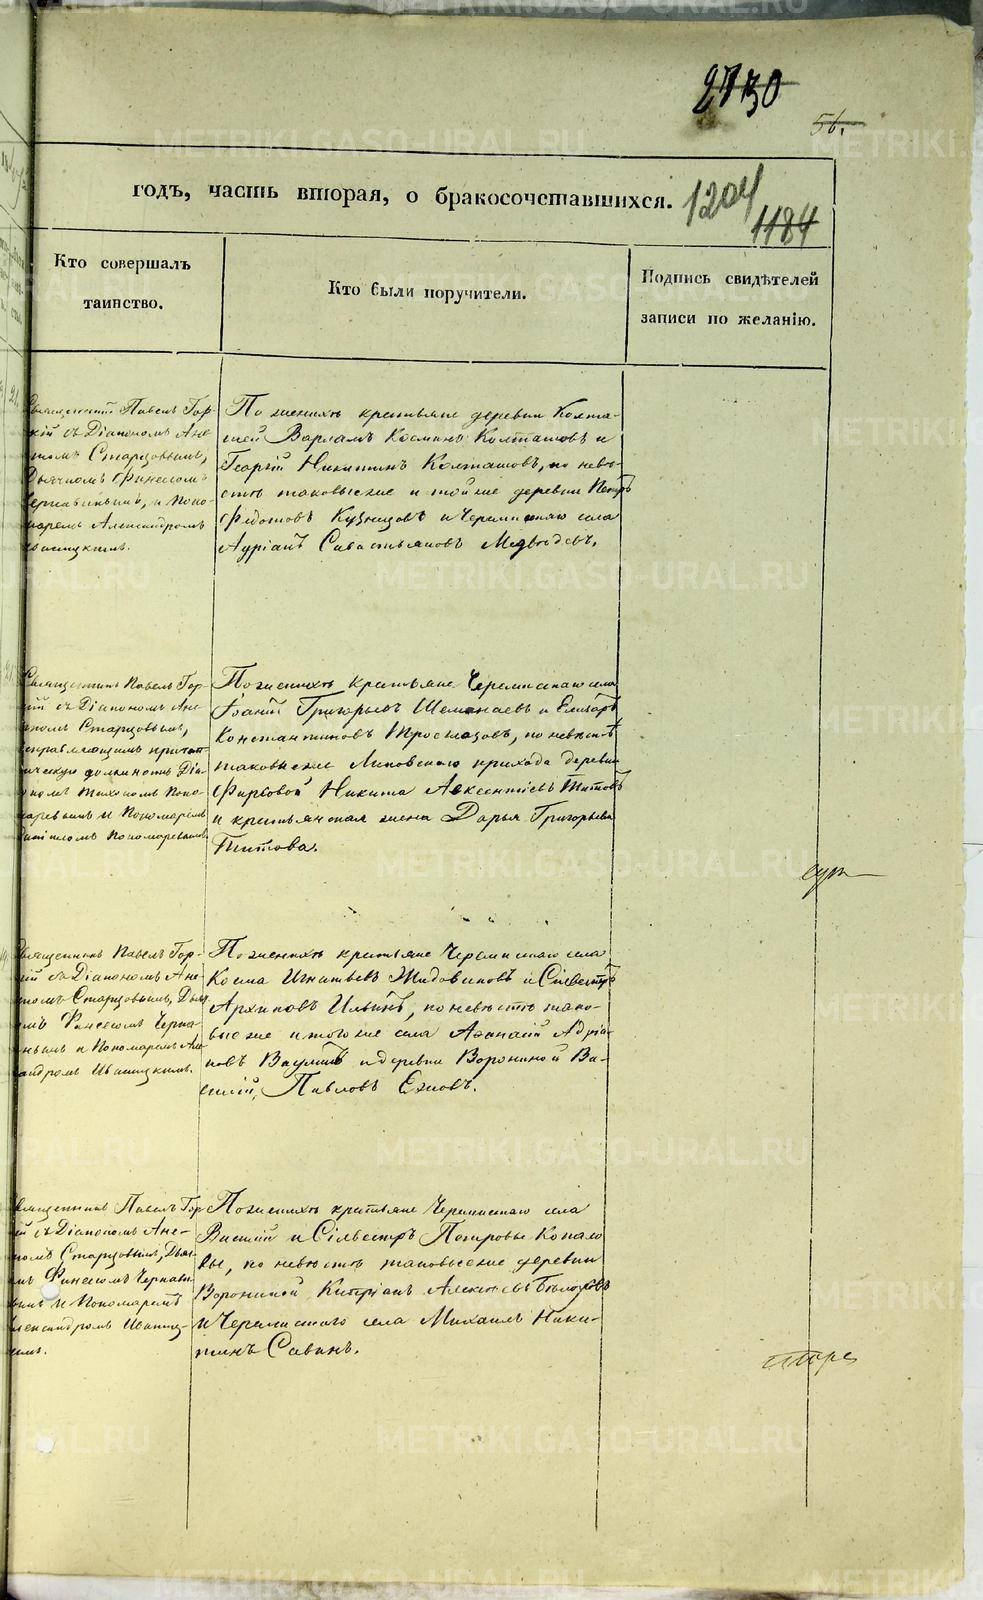 2730
56.
годъ, часть вторая, о бракосочетавшихся.
1204
1184
Кто совершалъ
таинство.
Кто были поручители.
Подпись свидѣтелей
записи по желанію.
Священникъ Павелъ Гор-
кій съ Діакономъ Ане-
Старцовымъ,
Дьячкомъ Финеесомъ
и Поно-
маремъ Александромъ
Ивашцкимъ.
По женихѣ крестьяне деревни Колта-
шей Варламъ Космин Колташовъ и
Георгій Никитинъ Колташовъ, по невѣ-
стѣ таковыеже и тойже деревни Петръ
Федотовъ Кузнецовъ и Черемисскаго села
Адріанъ Савастьяновъ Медвѣдевъ.
Священникъ Павелъ Гор-
кій съ Діакономъ Ане-
Старцовымъ,
исправляющимъ причет-
ническую должность Діа-
кономъ Тихономъ Поно-
маревымъ и Пономаремъ
Пономаревымъ.
По женихѣ крестьяне Черемисскаго села
Іоаннъ Григорьевъ Шеманаевъ и Елизаръ
Константиновъ по невѣстѣ
таковыеже Липовскаго прихода деревни
Фирсовой Никита Авксентіевъ Титовъ
и крестьянская жена Дарья Григорьева
Титова.
Священникъ Павелъ Гор-
кій съ Діакономъ Ане-
Старцовымъ, Дьяч-
комъ Финеесомъ Черна-
и Пономаремъ Але-
ксандромъ Ивашцкимъ.
По женихѣ крестьяне Черемисскаго села
Косма Игнатьевъ Жидовиновъ и Сильвестръ
Архиповъ Ильинъ, по невѣстѣ тако-
выеже и тогоже села Афанасій Адріа-
новъ Ваулинъ и деревни Ворониной Ва-
силій Павловъ Ежовъ.
Священникъ Павелъ Гор-
кій съ Діакономъ Ане-
Старцовымъ, Дьяч-
комъ Финеесомъ Чернав-
и Пономаремъ
Александромъ Ивашц-
кимъ.
По женихѣ крестьяне Черемисскаго села
Василій и Сільвестръ Петровы Копало
вы, по невѣстѣ таковыеже деревни
Ворониной Кипріанъ Алексѣевъ
и Черемисскаго села Михаилъ Ники-
тинъ Савинъ.
METRIKI.GASO-URAL.RU